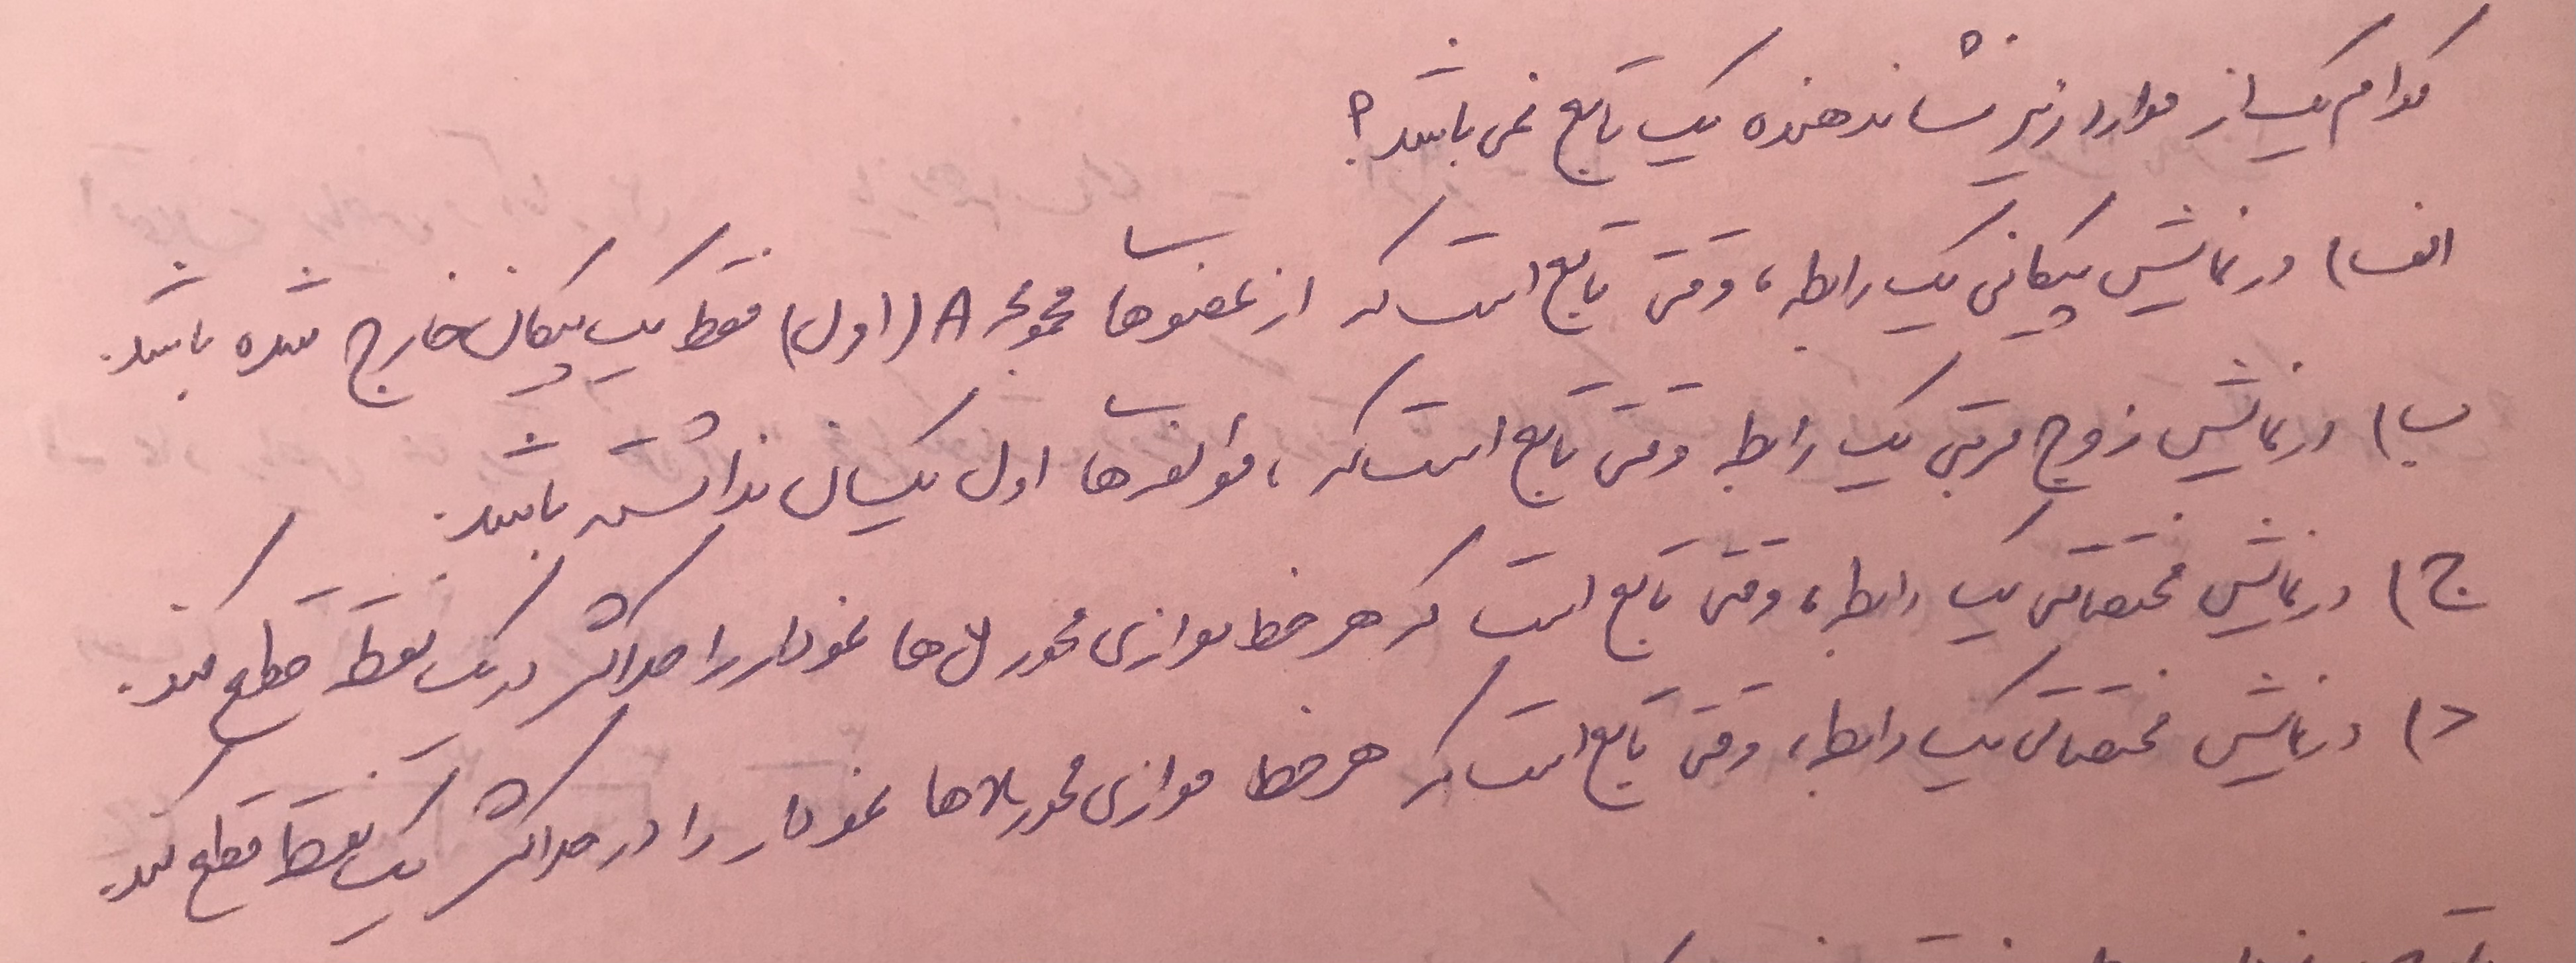 کدام یک از موارد زیر نشاندهنده یک تابع نمی باشد؟
الف) در نمایش پیکانی یک رابطه، وقتی تابع است که از عضوهای مجموعه A (اول) فقط یک پیکان خارج شده باشد.
ب) در نمایش زوج مرتبی یک رابطه وقتی تابع است که، مولفه‌های اول یکسان نداشته باشد.
ج) در نمایش مختصاتی یک رابطه، وقتی تابع است که هر خط موازی محور yها نمودار را حداکثر در یک نقطه قطع کند.
د) در نمایش مختصاتی یک رابطه، وقتی تابع است که هر خط موازی محور xها نمودار را در حداکثر یک نقطه قطع کند.